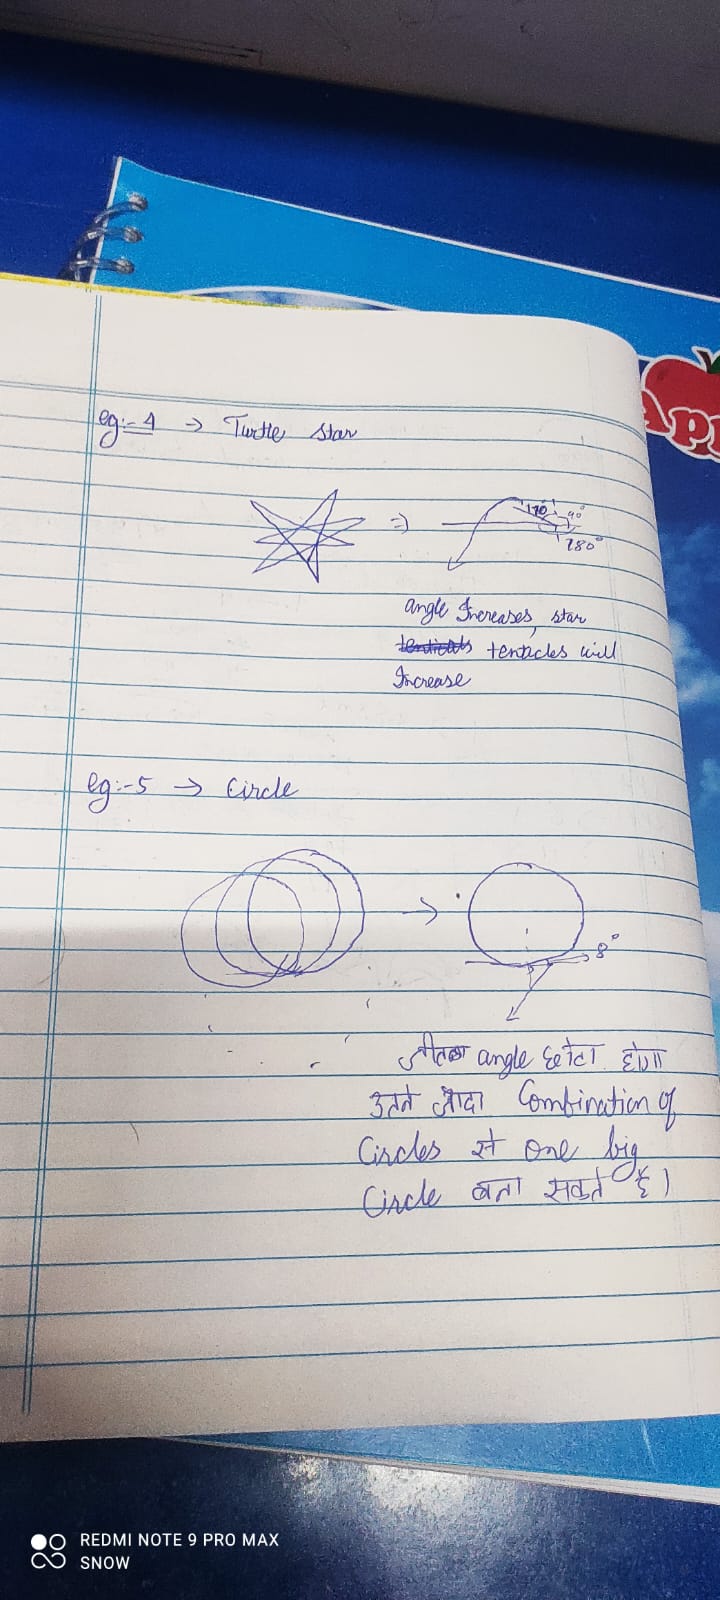 eg:- 4 → Turtle star
170° 90°
180°
angle Increases, star
tentacles will
Increase
eg:-5 → Circle
8°
जीतना angle छोटा होगा
उतने ज्यादा Combination of
Circles से one big
Circle बना सकते है।
App
REDMI NOTE 9 PRO MAX
SNOW